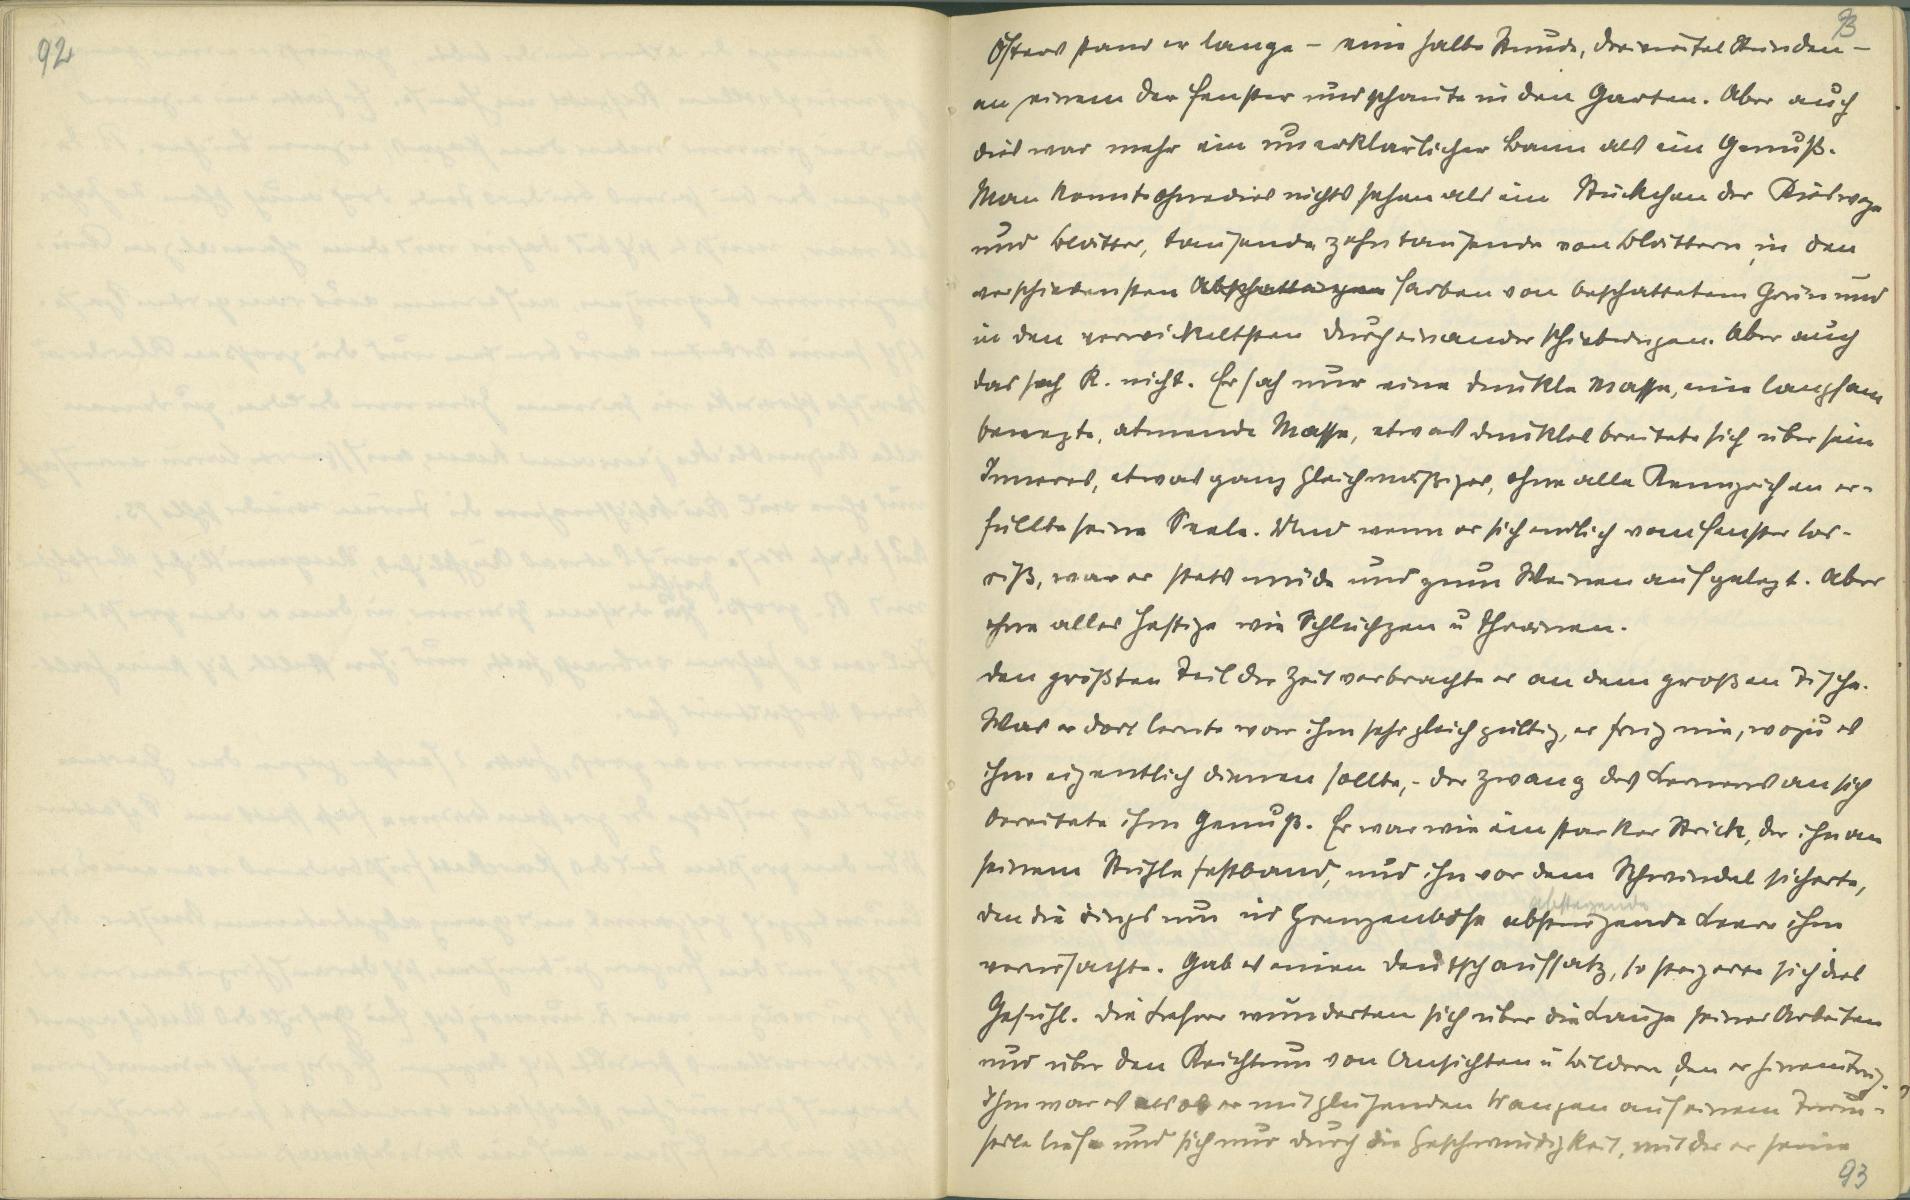 92
93
Öfters stand er lange – eine halbe Stunde, dreiviertel Stunden –
an einem der Fenster und schaute in den Garten. Aber auch
dies war mehr ein unerklärlicher Bann als ein Genuß.
Man konnte ohnedies nichts sehen als ein Stückchen der Kieswege
und Blätter, tausende zehntausende von Blättern, in den
verschiedensten Abschattungen Farben von beschattetem Grün und
in den verwickeltsten Durcheinanderschiebungen. Aber auch
das sah R. nicht. Er sah nur eine dunkle Masse, eine langsam
bewegte, atmende Masse, etwas dunkles breitete sich über sein
Inneres, etwas ganz gleichmäßiges, ohne alle Kennzeichen er-
füllte seine Seele. Und wenn er sich endlich vom Fenster los-
riß, war er stets müde und zum Weinen aufgelegt. Aber
ohne alles Heftige wie Schluchzen u Thränen.
Den größten Teil der Zeit verbrachte er an dem großen Tische.
Was er dort lernte war ihm sehr gleichgültig, er frug nie, wozu es
ihm eigentlich dienen sollte, – der Zwang des Lernens an sich
bereitete ihm Genuß. Er war wie ein starker Strick, der ihn an
seinem Stuhle festband, und ihn vor dem Schwindel sicherte,
abstürzende
den die rings um ins Grenzenlose Leere ihm
verursachte. Gab es einen Deutschaufsatz, so steigerte sich dies
Gefühl. Die Lehrer wunderten sich über die Länge seiner Arbeiten
und über den Reichtum von Ansichten u Bildern, den er hineintrug.
Ihm war es als ob er mit glühenden Wangen auf einem Turm-
seile liefe und sich nur durch die Geschwindigkeit, mit der er seine
93